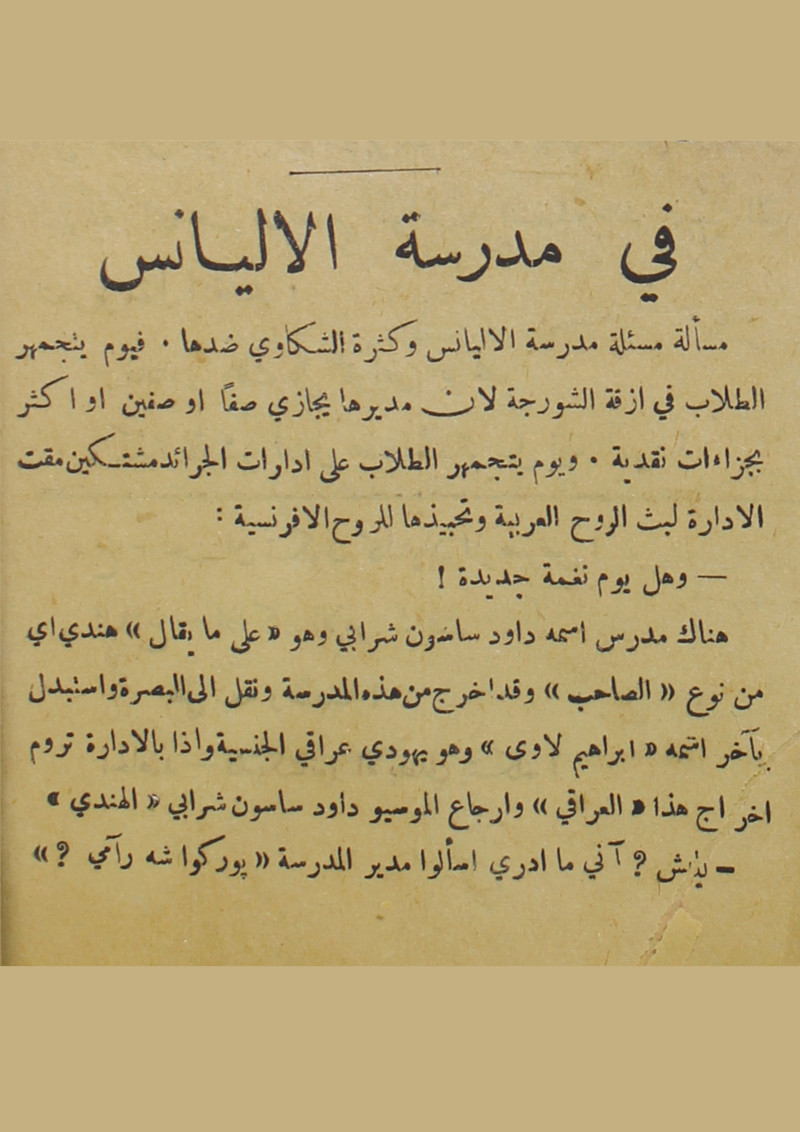 في مدرسة الاليانس
مسألة مسئلة مدرسة الاليانس وكثرة الشكاوي ضدها . فيوم يتجمهر
الطلاب في ازقة الشورجة لان مديرها يجازي صفًا او صفين او اكثر
بجزاءات نقدية . ويوم يتجمهر الطلاب على ادارات الجرائد مشتكين مقت
الادارة لبث الروح العربية وتحبيذها للروح الافرنسية :
— وهل يوم نغمة جديدة !
هناك مدرس اسمه داود ساسون شرابي وهو « على ما يقال » هندي اي
من نوع « الصاحب » وقد اخرج من هذه المدرسة ونقل الى البصرة واستبدل
بآخر اسمه « ابراهيم لاوى » وهو يهودي عراقي الجنسية واذا بالادارة تروم
اخراج هذا « العراقي » وارجاع الموسيو داود ساسون شرابي « الهندي »
— ? آني ما ادري اسألوا مدير المدرسة « پوركوا شه رآمي ? »